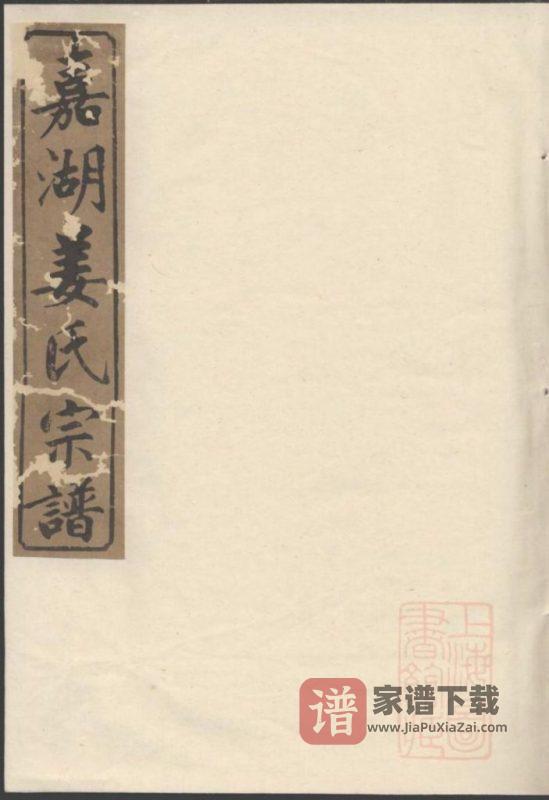 嘉湖姜氏宗譜
上海圖書館藏
谱 家谱下载
www.JiaPuXiaZai.com